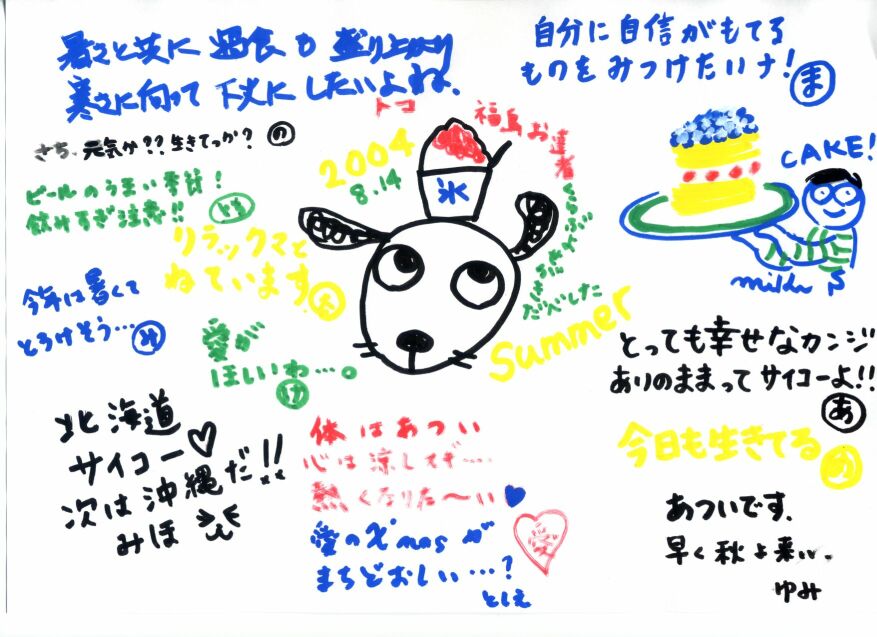 暑さと共に過食も盛り上がり
寒さに向って下丈にしたいよね。
トコ
自分に自信がもてる
ものをみつけたいナ!
ま
さち、元気か??生きてっか?
の
ビールのうまい季節!
飲みすぎ注意!!
2004
8.14
氷
福島お達者
CAKE!
milk
リラックマと
ねています。
今年は暑くて
とろけそう…
み
愛が
ほしいわ…。
け
Summer
とっても幸せなカンジ
ありのままってサイコーよ!!
あ
今日も生きてる
北海道
サイコー♡
次は沖縄だ!!
みほ
体はあつい
心は涼しすぎ…
熱くなりた〜い
愛のX'masが
まちどおしい…?
としえ
愛
あついです、
早く秋よ来い。
ゆみ